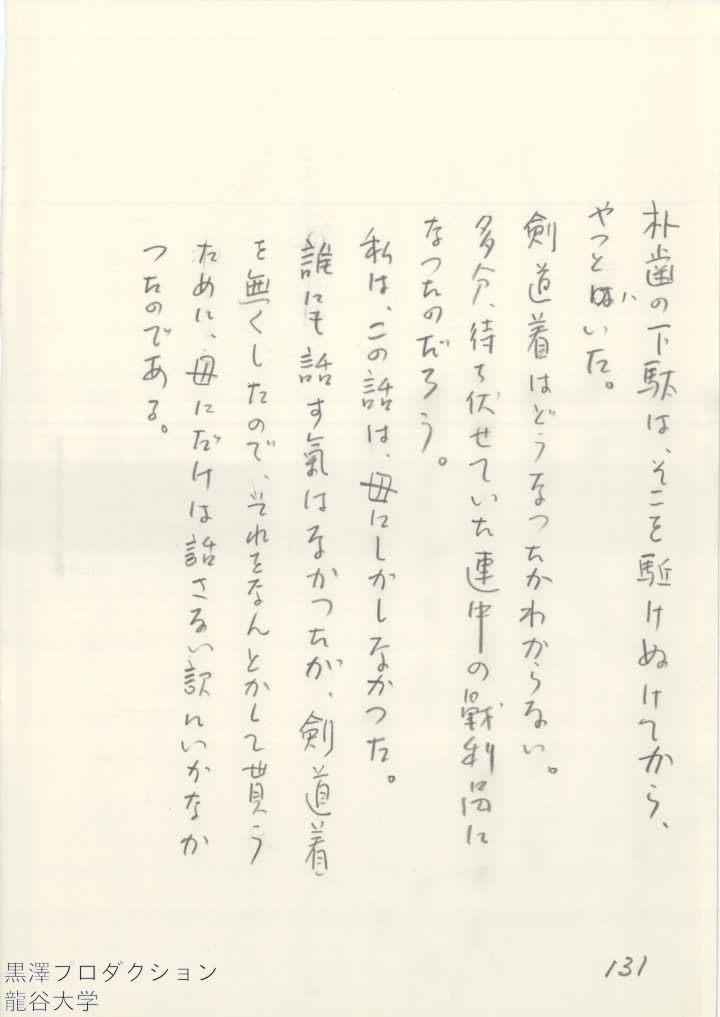 朴歯の下駄は、そこを駈けぬけてから、
やつとはいた。
剣道着はどうなつたかわからない。
多分、待ち伏せていた連中の戦利品に
なつたのだろう。
私は、この話は、母にしかしなかつた。
誰にも話す氣はなかつたが、剣道着
を無くしたので、それをなんとかして貰う
ために、母にだけは話さない訳にいかなか
つたのである。
131
黒澤プロダクション
龍谷大学